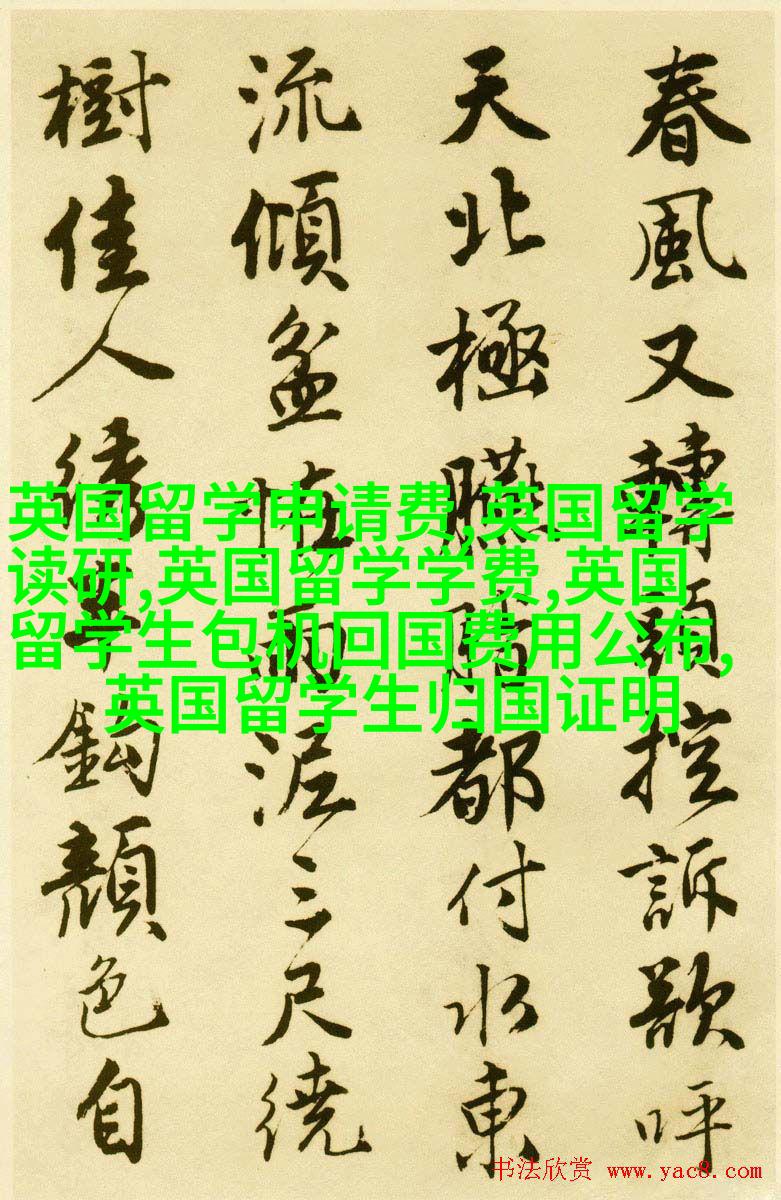 春風又轉頭控訴欲呼
天北極臙脂都付水東
流傾盆恠雨泥三尺繞
樹佳人繡半鈎顏色自
英国留学申请费,英国留学
读研,英国留学学费,英国
留学生包机回国费用公布,
英国留学生归国证明
书法欣赏 www.yac8.com